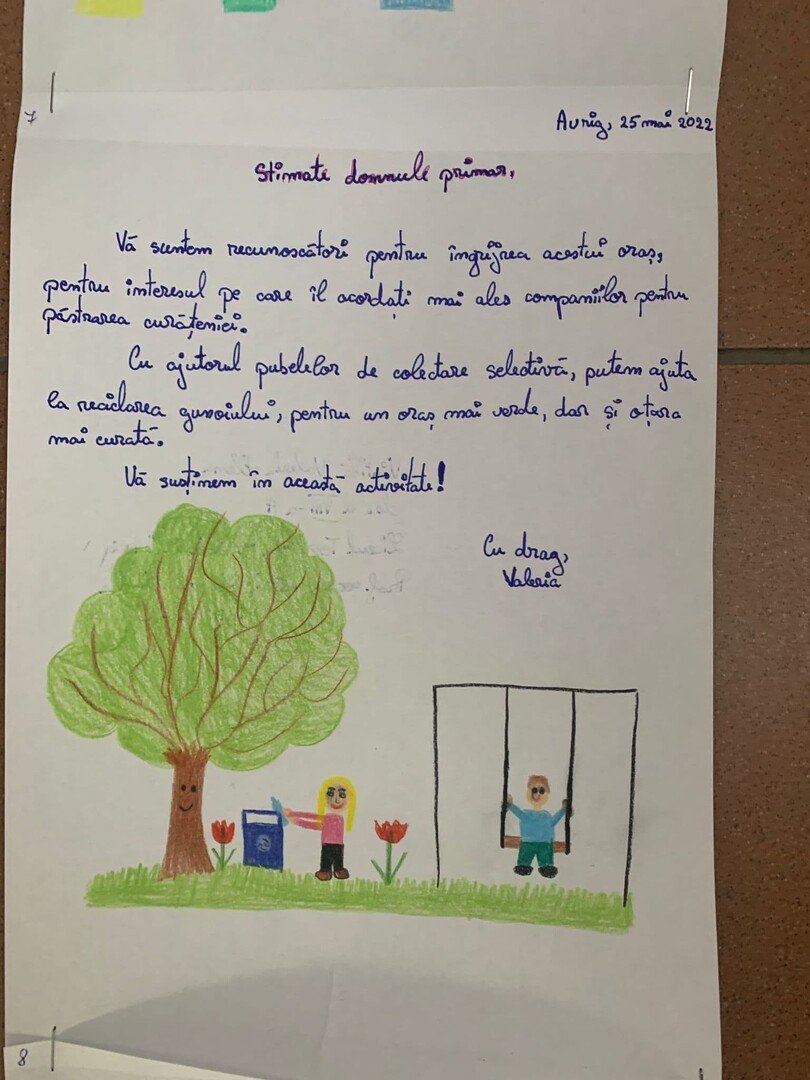 7
Avrig, 25 mai 2022
Stimate domnule primar,
Vă suntem recunoscători pentru îngrijirea acestui oraș,
pentru interesul pe care îl acordați mai ales companiilor pentru
păstrarea curățeniei.
Cu ajutorul pubelelor de colectare selectivă, putem ajuta
la reciclarea gunoiului, pentru un oraș mai verde, dar și o țara
mai curată.
Vă susținem în această activitate!
Cu drag,
Valeria
8